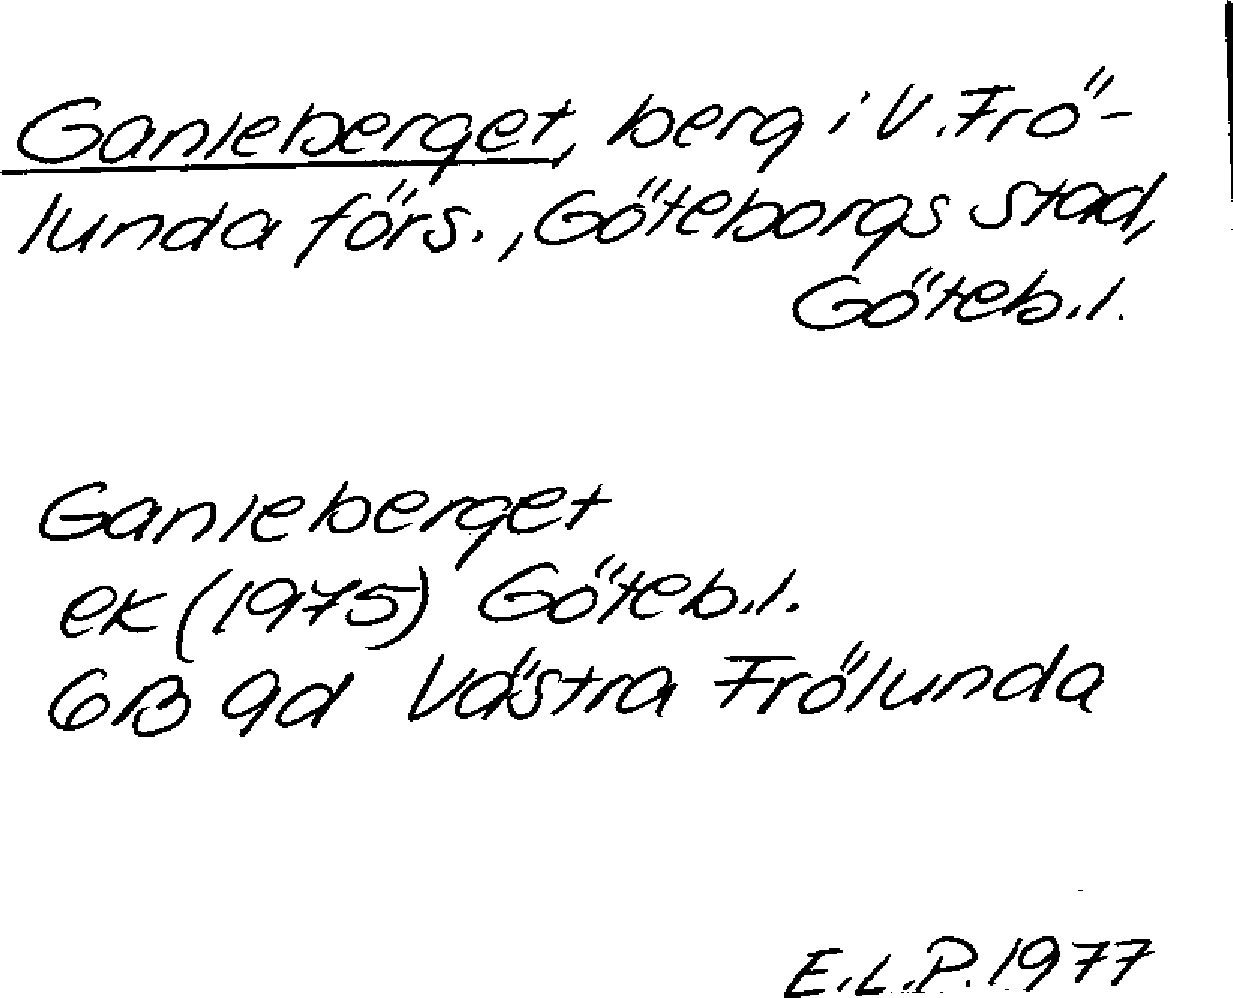 Ganleberget, berg i V. Frö-
lunda förs., Göteborgs stad,
Göteb.l.
Ganleberget
ek (1975) Göteb.l.
6B 9d Västra Frölunda
E.L.P. 1977